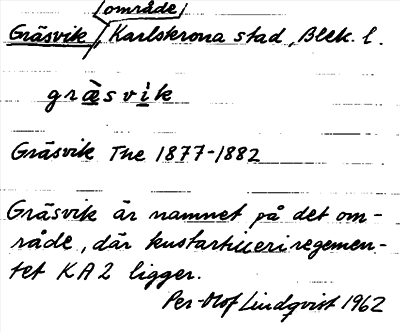 område
Gräsvik, Karlskrona stad, Blek. l.
græ̀svik
Gräsvik Tne 1877-1882
Gräsvik är namnet på det om-
råde, där kustartilleriregemen-
tet KA2 ligger.
Per-Olof Lindqvist 1962